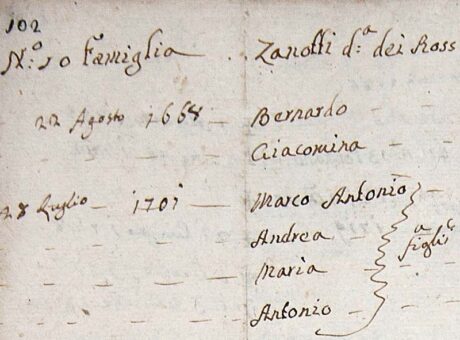 102
N:º 10 Famiglia Zanotti d:ª dei Ross
22 Agosto 1668 Bernardo
Giacomina
28 Luglio 1701 Marco Antonio
Andrea
Maria
Antonio